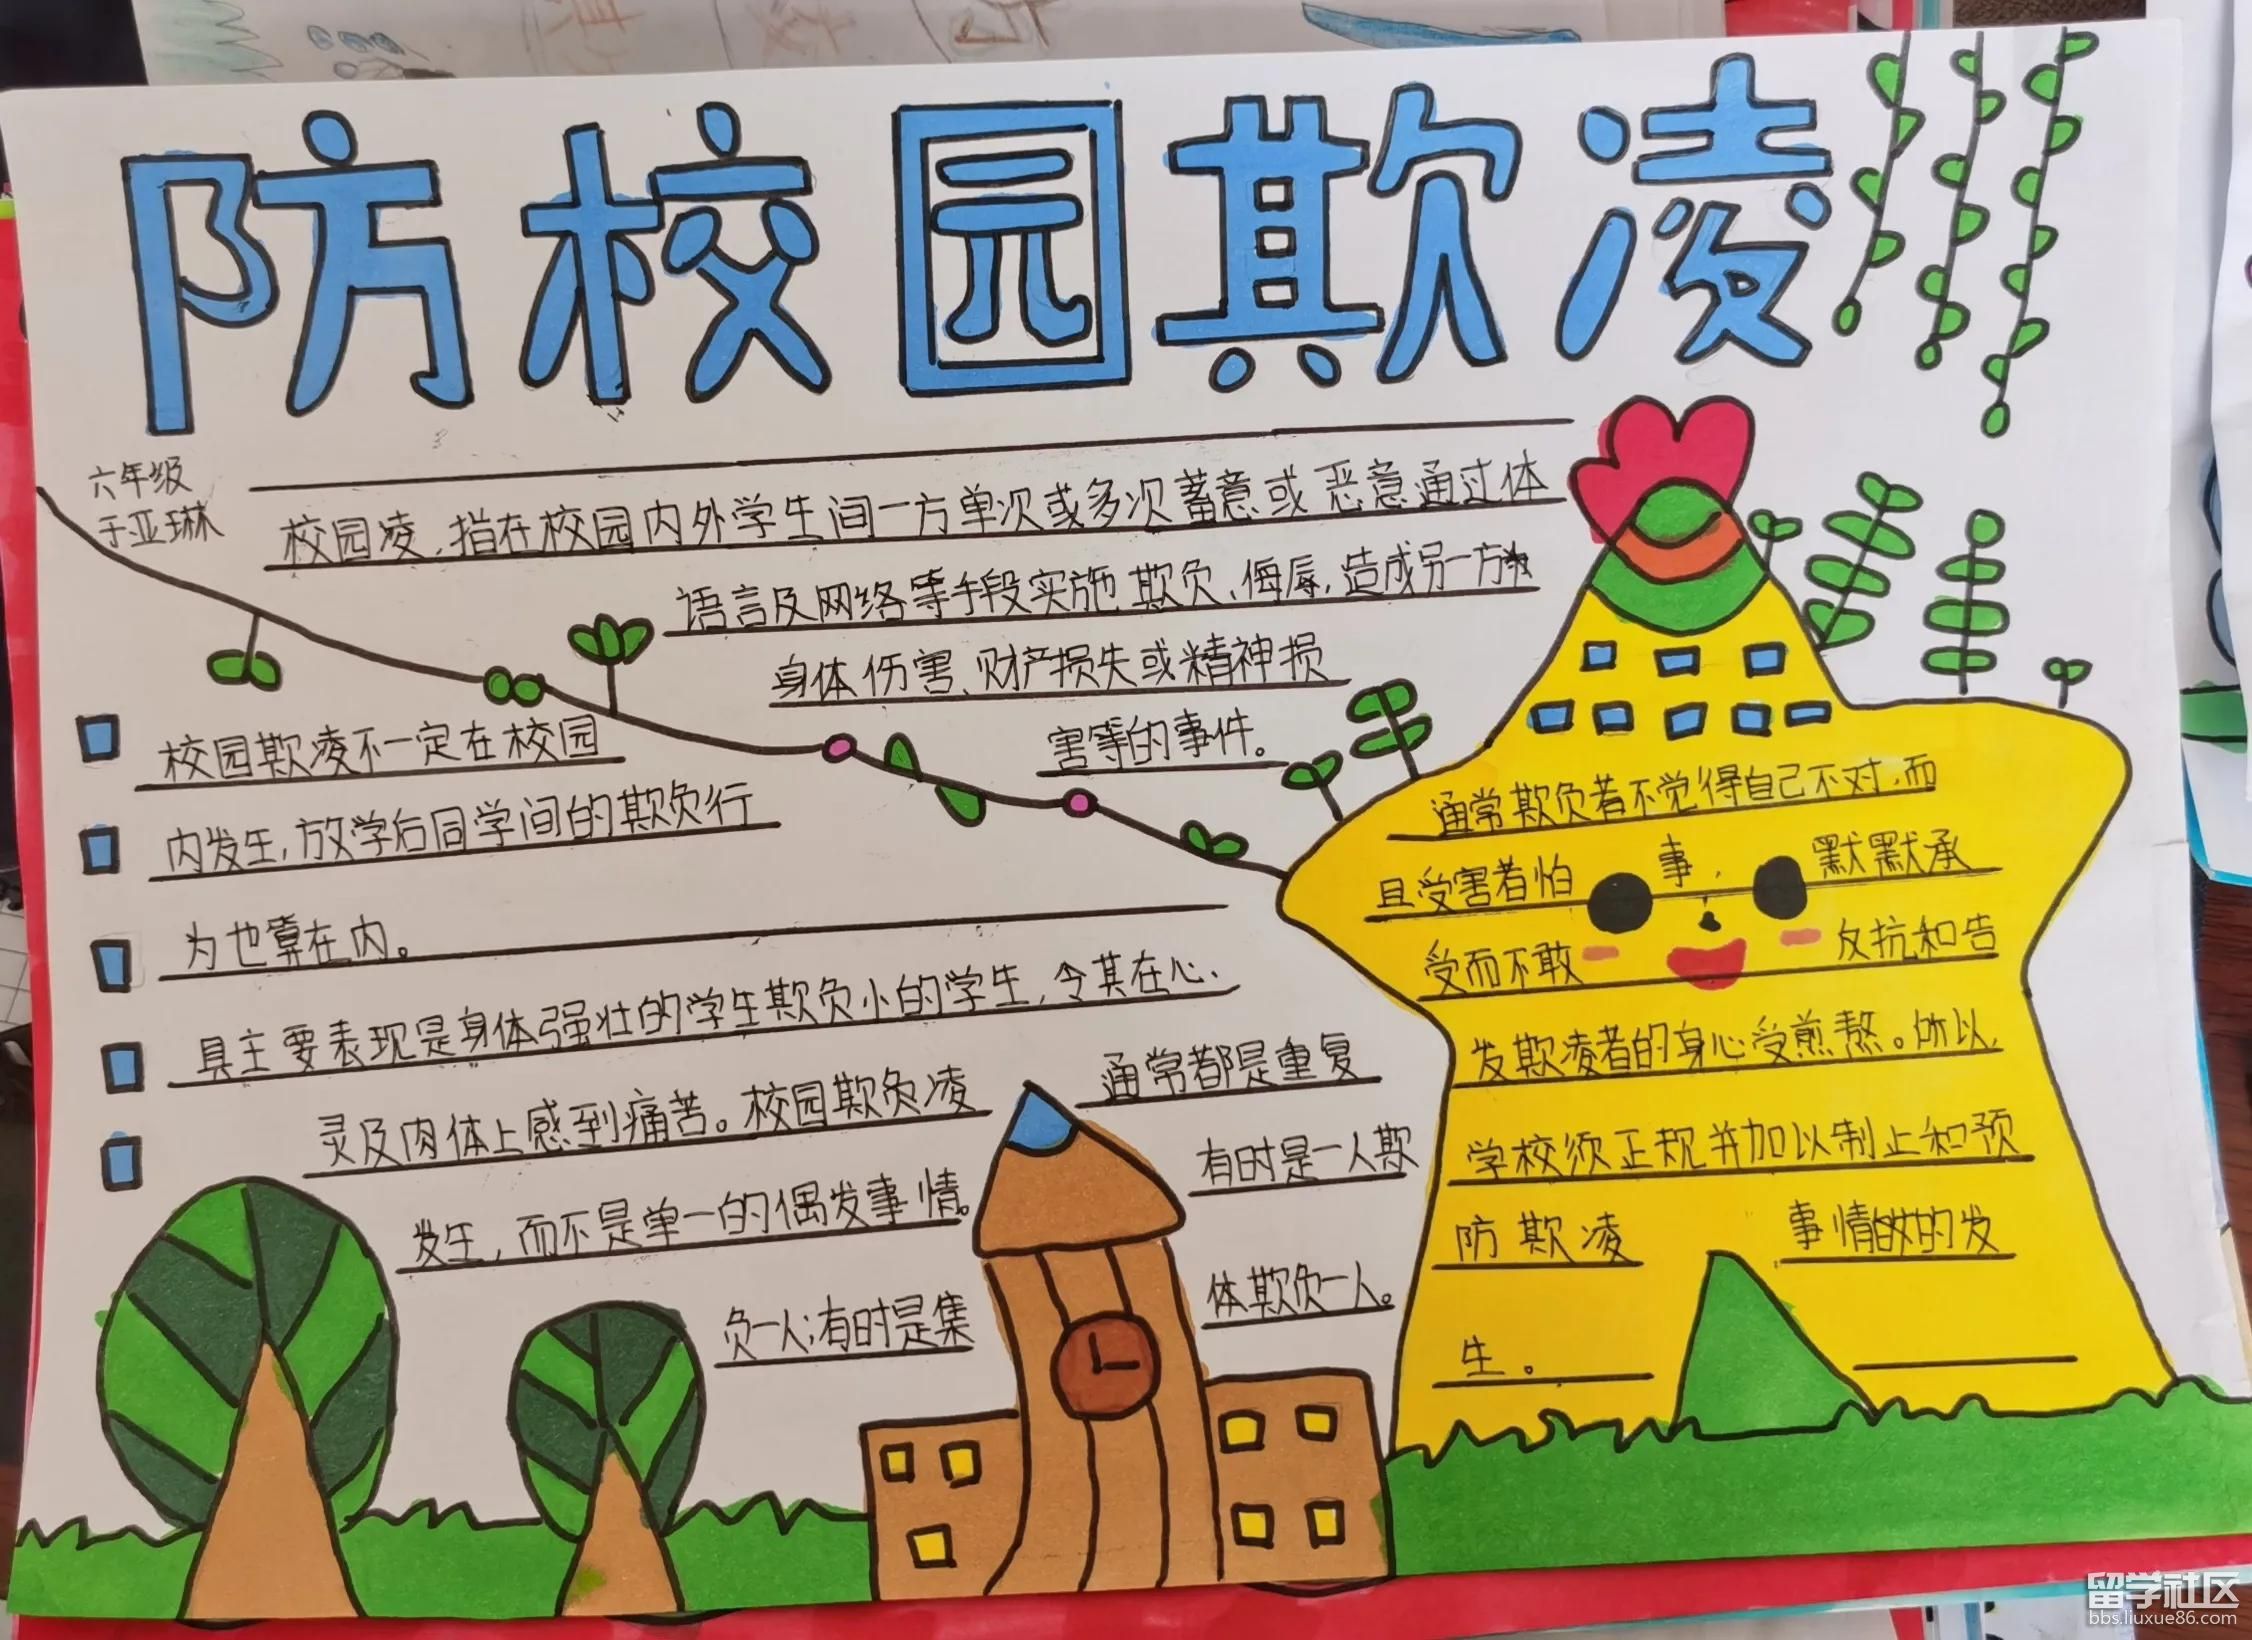 防校园欺凌
六年级
于亚琳
校园凌,指在校园内外学生间一方单次或多次蓄意或恶意通过体
语言及网络等手段实施欺负、侮辱,造成另一方
身体伤害、财产损失或精神损
害等的事件。
校园欺凌不一定在校园
内发生,放学后同学间的欺负行
为也算在内。
具主要表现是身体强壮的学生欺负小的学生,令其在心、
灵及肉体上感到痛苦。校园欺负凌 通常都是重复
发生,而不是单一的偶发事情。 有时是一人欺
负一人;有时是集 体欺负一人。
通常欺负者不觉得自己不对,而
且受害者怕事,默默承
受而不敢 反抗和告
发欺凌者的身心受煎熬。所以,
学校须正规并加以制止和预
防欺凌 事情的发
生。
留学社区
bbs.liuxue86.com